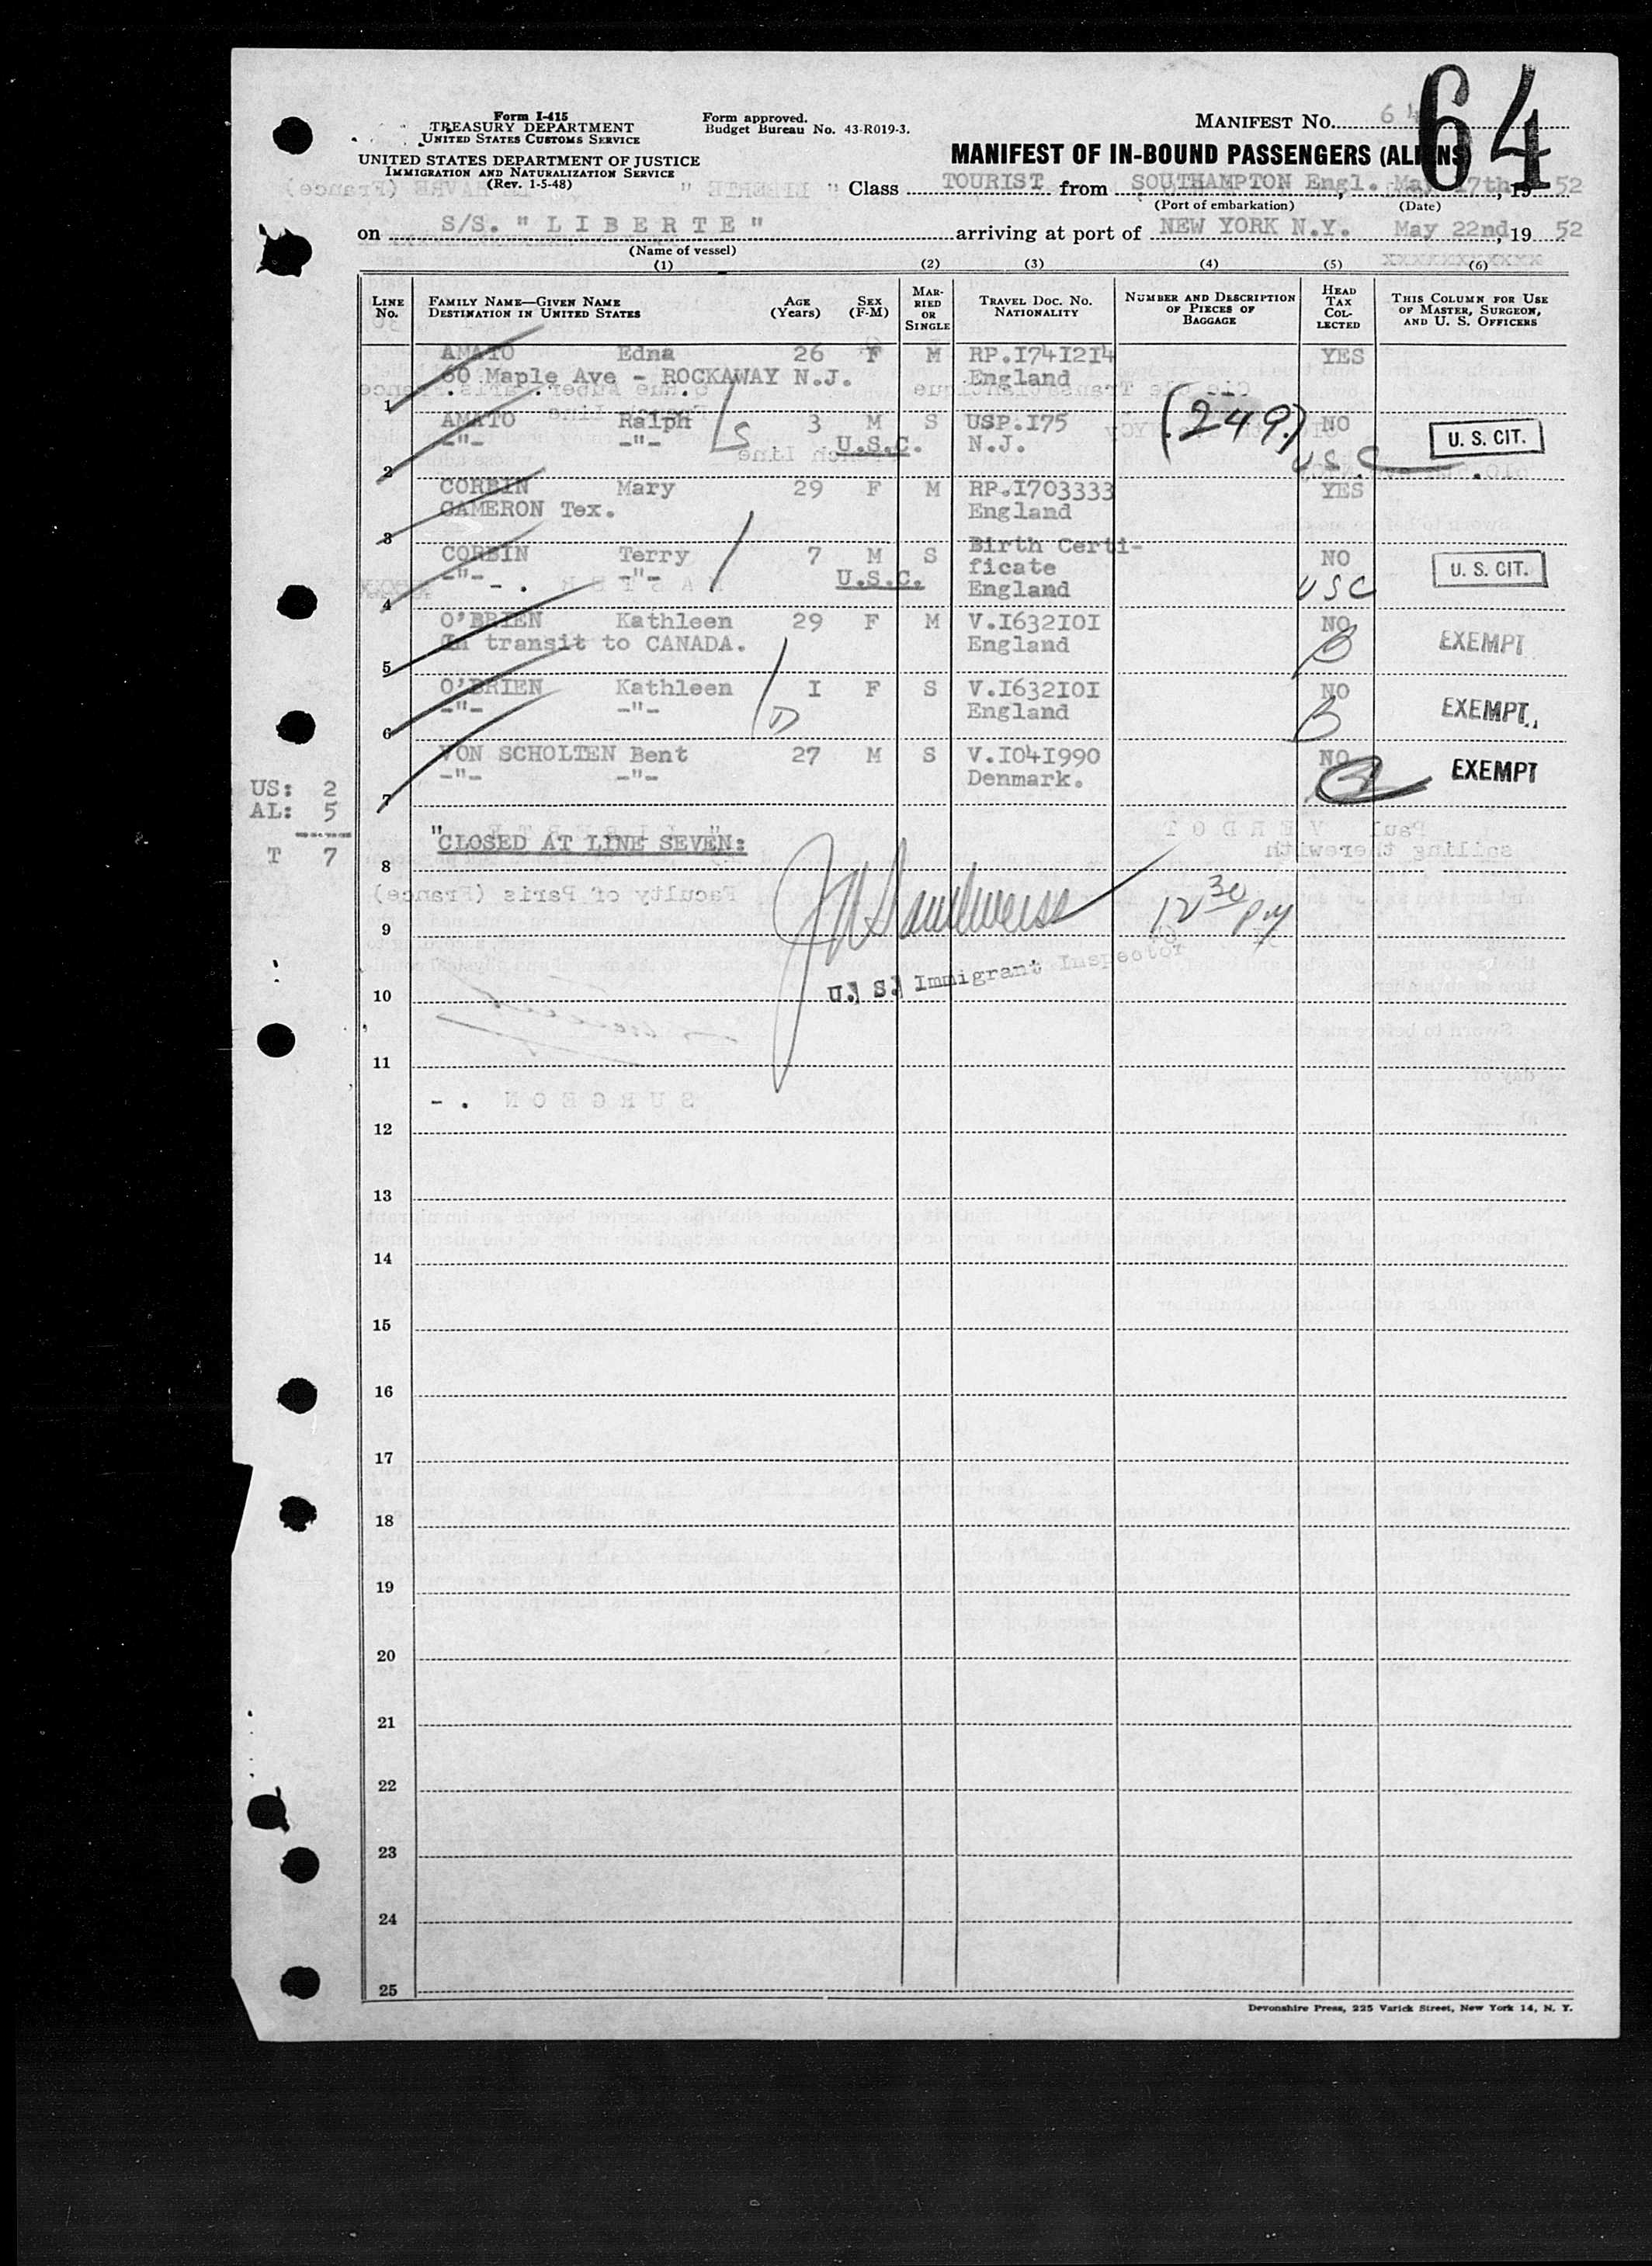 64
Form I-415
TREASURY DEPARTMENT
UNITED STATES CUSTOMS SERVICE
UNITED STATES DEPARTMENT OF JUSTICE
IMMIGRATION AND NATURALIZATION SERVICE
(Rev. 1-5-48)
Form approved.
Budget Bureau No. 43-R019-3.
MANIFEST NO. 64
MANIFEST OF IN-BOUND PASSENGERS (ALIENS)
Class TOURIST from SOUTHAMPTON Engl. May 17th, 19 52
(Port of embarkation) (Date)
on S/S. " L I B E R T E " arriving at port of NEW YORK N.Y. May 22nd, 19 52
(Name of vessel)
(1) (2) (3) (4) (5) (6)
LINE No. FAMILY NAME—GIVEN NAME DESTINATION IN UNITED STATES AGE (Years) SEX (F-M) MARRIED OR SINGLE TRAVEL DOC. NO. NATIONALITY NUMBER AND DESCRIPTION OF PIECES OF BAGGAGE HEAD TAX COLLECTED THIS COLUMN FOR USE OF MASTER, SURGEON, AND U. S. OFFICERS
AMATO Edna 26 F M RP.I741214 YES
60 Maple Ave - ROCKAWAY N.J. England
1
AMATO Ralph 3 M S USP.I75 (249) NO U. S. CIT.
-"- -"- U.S.C. N.J. USC
2
CORBIN Mary 29 F M RP.I703333 YES
CAMERON Tex. England
3
CORBIN Terry 7 M S Birth Certi-
ficate NO U. S. CIT.
-"- -"- U.S.C. England USC
4
O'BRIEN Kathleen 29 F M V.I632I0I NO
In transit to CANADA. England EXEMPT
5
O'BRIEN Kathleen I F S V.I632I0I NO
-"- -"- England EXEMPT
6
VON SCHOLTEN Bent 27 M S V.I04I990 NO
-"- -"- Denmark. EXEMPT
7
US: 2
AL: 5
T 7
"CLOSED AT LINE SEVEN:
8
12 30 PM
9
U. S. Immigrant Inspector
10
11
12
13
14
15
16
17
18
19
20
21
22
23
24
25
Devonshire Press, 225 Varick Street, New York 14, N. Y.